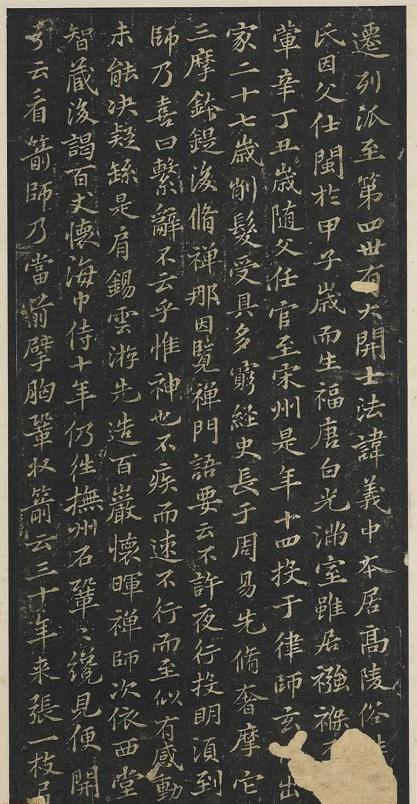 遷列派至第四世有大開士法諱義中本居高陵俗姓
氏因父仕閩於甲子歲而生福唐白光滿室雖居襁褓
葷辛丁丑歲随父任官至宋州是年十四投于律師玄出
家二十七歲削髮受具多窮経史長于周易先脩奢摩它
三摩鉢鍉後脩禅那因覧禅門語要云不許夜行投明須到
師乃喜曰繫辭不云乎惟神也不疾而速不行而至似有感動
未能决疑繇是肩錫雲游先造百巖懷暉禅師次依西堂
智蔵後謁百丈懷海巾侍十年仍徃撫州石鞏〻纔見便開
弓云看箭師乃當前擘胸鞏収箭云三十年来張一枝弓